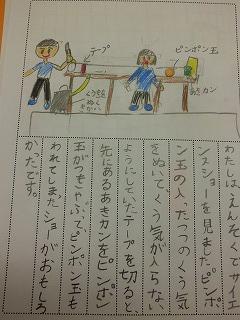 テープ
ピンポン玉
くう気を
ぬく
きかい
あきカン
わたしは、えんそくでサイエ
ンスショーを見ました。ピンポ
ン玉の入ったつつのくう気
をぬいてくう気がいらない
ようにしていたテープを切ると、
先にあるあきカンをピンポン
玉がつきやぶって、ピンポン玉も
われてしまったショーがおもしろ
かたです。